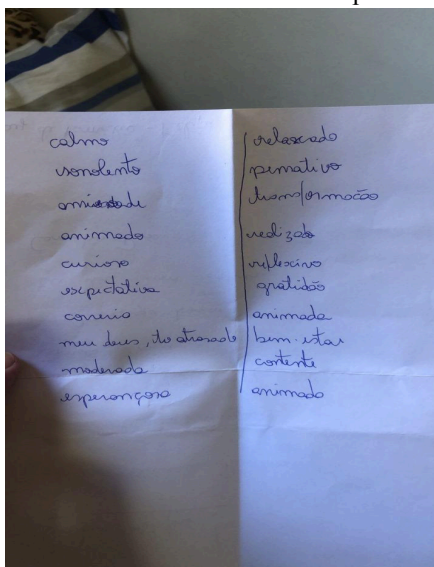 calmo
sonolento
ansiedade
animado
curioso
expectativa
correria
meu deus, tô atrasado
moderada
esperançosa
relaxado
pensativo
transformação
realizado
reflexivo
gratidão
animada
bem-estar
contente
animado